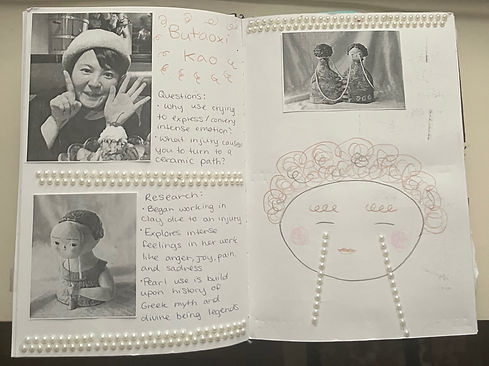 Butaoxi
Kao
Questions:
· Why use crying
to express/convey
intense emotion?
· What injury caused
you to turn to a
ceramic path?
Research:
· Began working in
clay due to an injury
· Explores intense
feelings in her work
like anger, joy, pain,
and sadness
· Pearl use is build
upon history of
Greek myth and
divine being legends